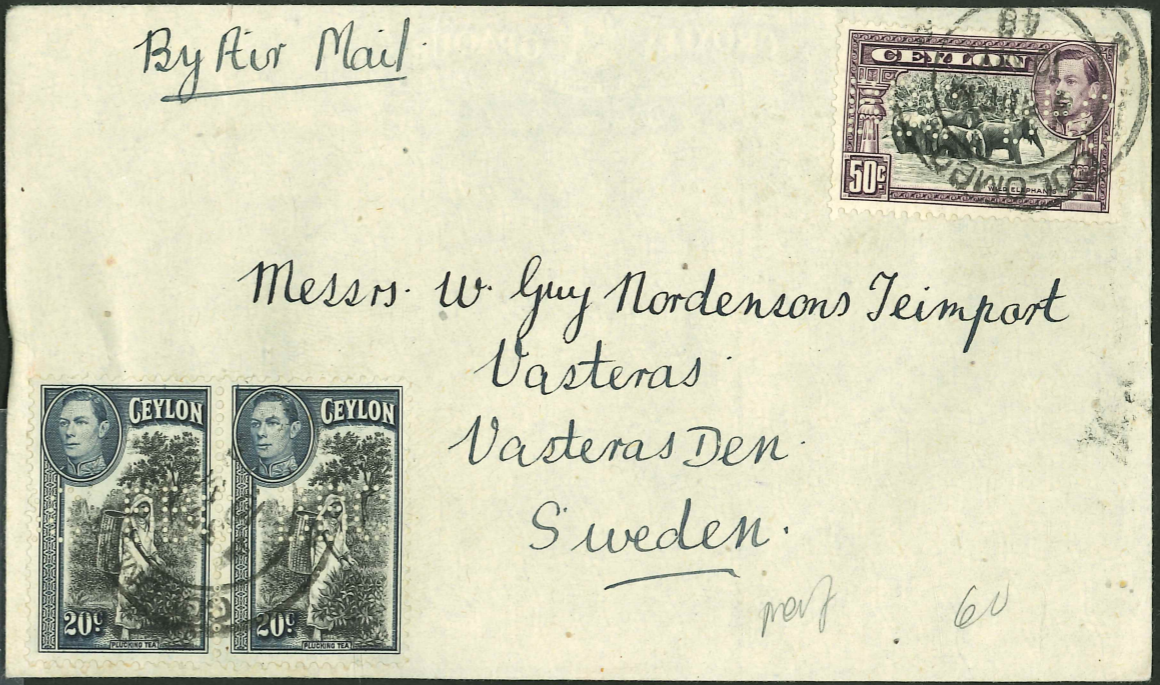 By Air Mail
CEYLON
50c
WILD ELEPHANTS
48
COLOMBO
Messrs. W. Guy Nordensons Teimport
Vasteras
Vasteras Den.
Sweden.
CEYLON
20c
PLUCKING TEA
CEYLON
20c
PLUCKING TEA
perf
60